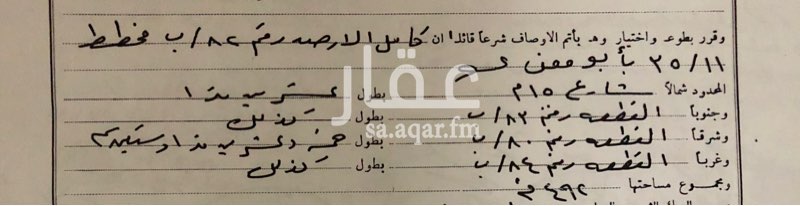 وقرر بطوعه واختياره وهو بأتم الأوصاف شرعاً قائلاً ان كامل الارض رقم ٨٢/ب مخطط
٣٥/١١ بأبو معن
المحدود شمالاً شارع ١٥م بطول عشرين متر
وجنوباً القطعه رقم ٨٣/ب بطول كذلك
وشرقاً القطعه رقم ٨٠/ب بطول خمسة وعشرين متر وستين سم
وغرباً القطعه رقم ٨٤/ب بطول كذلك
ومجموع مساحتها
عقار
sa.aqar.fm